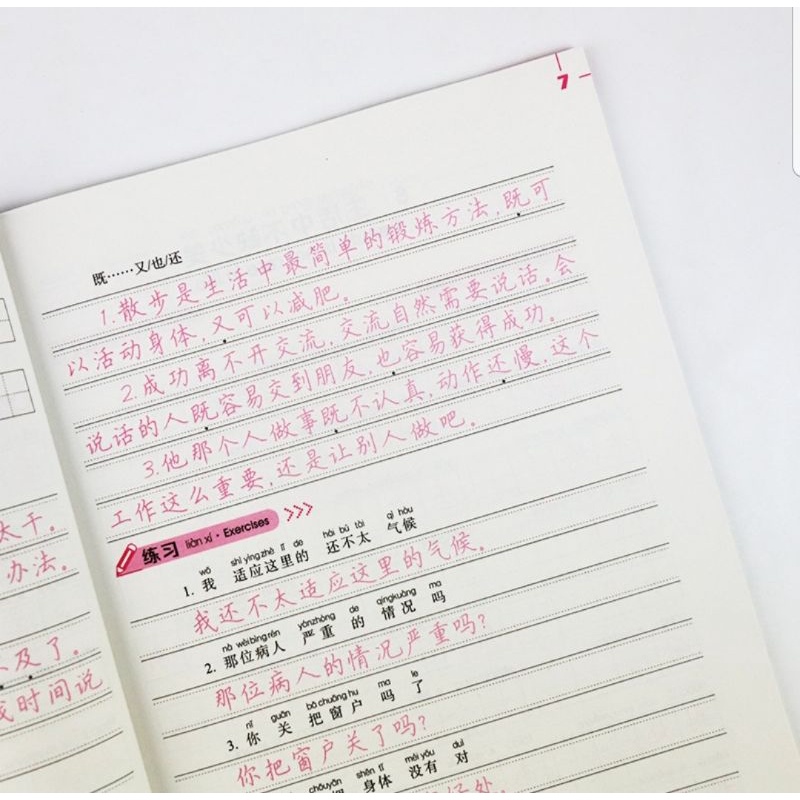 7
既……又/也/还
1.散步是生活中最简单的锻炼方法,既可
以活动身体,又可以减肥。
2.成功离不开交流,交流自然需要说话。会
说话的人既容易交到朋友,也容易获得成功。
3.他那个人做事既不认真,动作还慢,这个
工作这么重要,还是让别人做吧。
练习 liàn xí · Exercises
wǒ shì yìng zhè lǐ de hái bú tài qì hòu
1. 我 适应这里的 还不太 气候
我还不太适应这里的气候。
nà wèi bìng rén yánzhòng de qíngkuàng ma
2. 那位病人 严重 的 情况 吗
那位病人的情况严重吗?
nǐ guān bǎ chuāng hu ma le
3. 你 关 把窗户 吗 了
你把窗户关了吗?
chōuyān shēn tǐ méi yǒu duì
身体 没有 对
好处。
太干。
办法。
及了。
时间说